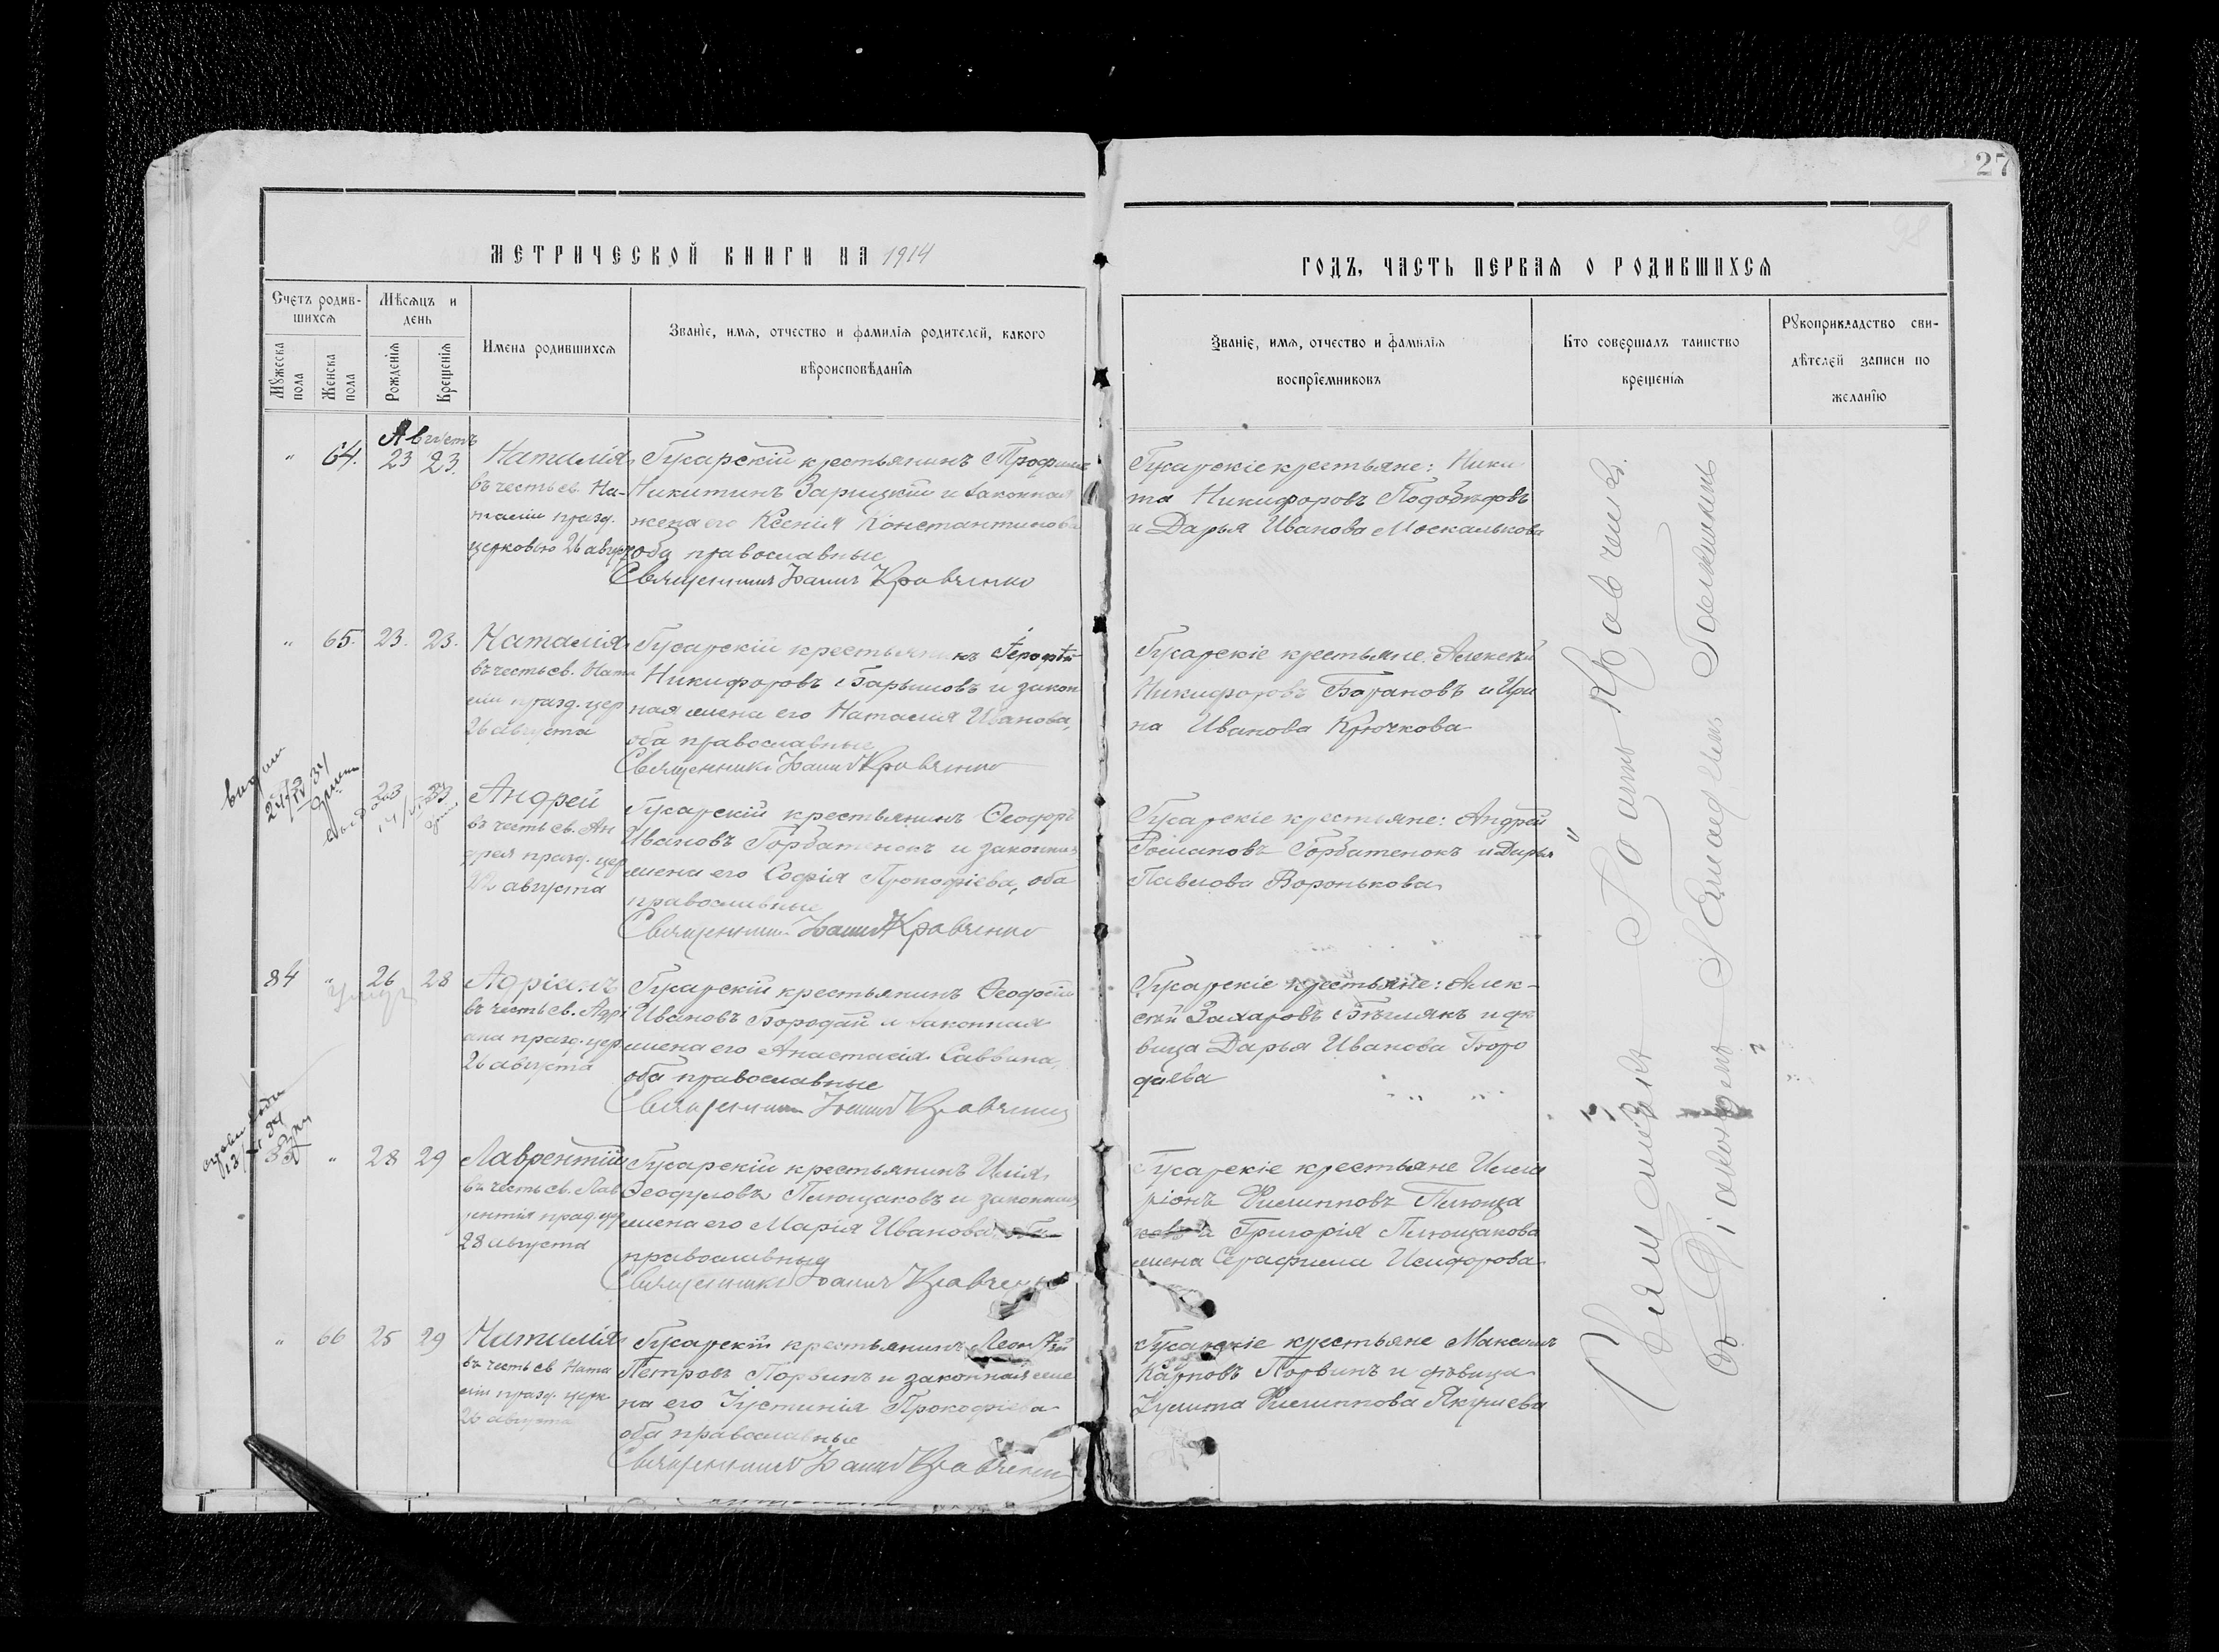 27
98
МЕТРИЧЕСКОЙ КНИГИ НА 1914
ГОДЪ, ЧАСТЬ ПЕРВАЯ О РОДИВШИХСЯ
Счетъ родив-
шихся
Мѣсяцъ и
день
Мꙋжеска
пола
Женска
пола
Рожденія
Крещенія
Имена родившихся
Званіе, имя, отчество и фамилія родителей, какого
вѣроисповѣданія
Званіе, имя, отчество и фамилія
воспріемниковъ
Кто совершалъ таинство
крещенія
Рꙋкоприкладство сви-
дѣтелей записи по
желанію
Августъ
" 64. 23 23.
Наталія
въ честь св. На-
таліи празд.
церковью 26 август
Гусарскій крестьянинъ Трофимъ
Никитинъ Зарицкій и законная
жена его Ксенія Константинова
оба православные
Священникъ Іоаннъ Кравченко
Гусарскіе крестьяне: Ники
та Никифоровъ Подобѣдовъ
и Дарья Иванова Москалькова
" 65. 23. 23.
Наталія
въ честь св. Ната
ліи празд. цер
26 августа
Гусарскій крестьянинъ Іерофѣй
Никифоровъ Барышовъ и закон
ная жена его Наталія Иванова,
оба православные
Священникъ Іоаннъ Кравченко
Гусарскіе крестьяне: Алексѣй
Никифоровъ Барановъ и Ири
на Иванова Крючкова
23 23
Андрей
въ честь св. Ан
дрея празд. цер
августа
Гусарскій крестьянинъ Ѳеодоръ
Ивановъ Горбатенокъ и законная
жена его Софія Прокофіева, оба
православные
Священникъ Іоаннъ Кравченко
Гусарскіе крестьяне: Андрей
Романовъ Горбатенокъ и Дарья
Павлова Воронькова
84 " 26 28
Адріанъ
въ честь св. Адрі
ана празд. цер
26 августа
Гусарскій крестьянинъ Ѳеодосій
Ивановъ Бородай и законная
жена его Анастасія Саввина,
оба православные
Священникъ Іоаннъ Кравченко
Гусарскіе крестьяне: Алек-
сѣй Захаровъ Бѣглякъ и дѣ
вица Дарья Иванова Боро
даева
85 " 28 29
Лаврентій
въ честь св. Лав
рентія празд. цер
28 августа
Гусарскій крестьянинъ Илія
Ѳеодуловъ Плющаковъ и законная
жена его Марія Иванова, оба
православные
Священникъ Іоаннъ Кравченко
Гусарскіе крестьяне Илла
ріонъ Филипповъ Плюща
ковъ и Григорія Плющакова
жена Серафима Исидорова
" 66 25 29
Наталія
въ честь св. Ната
ліи празд. церк.
26 августа
Гусарскій крестьянинъ Леонтій
Петровъ Порвинъ и законная же
на его Іустинія Прокофіева
оба православные
Священникъ Іоаннъ Кравченко
Гусарскіе крестьяне Максимъ
Карповъ Порвинъ и дѣвица
Іулита Филиппова Якушева
Священникъ Іоаннъ Кравченко
съ Діакономъ